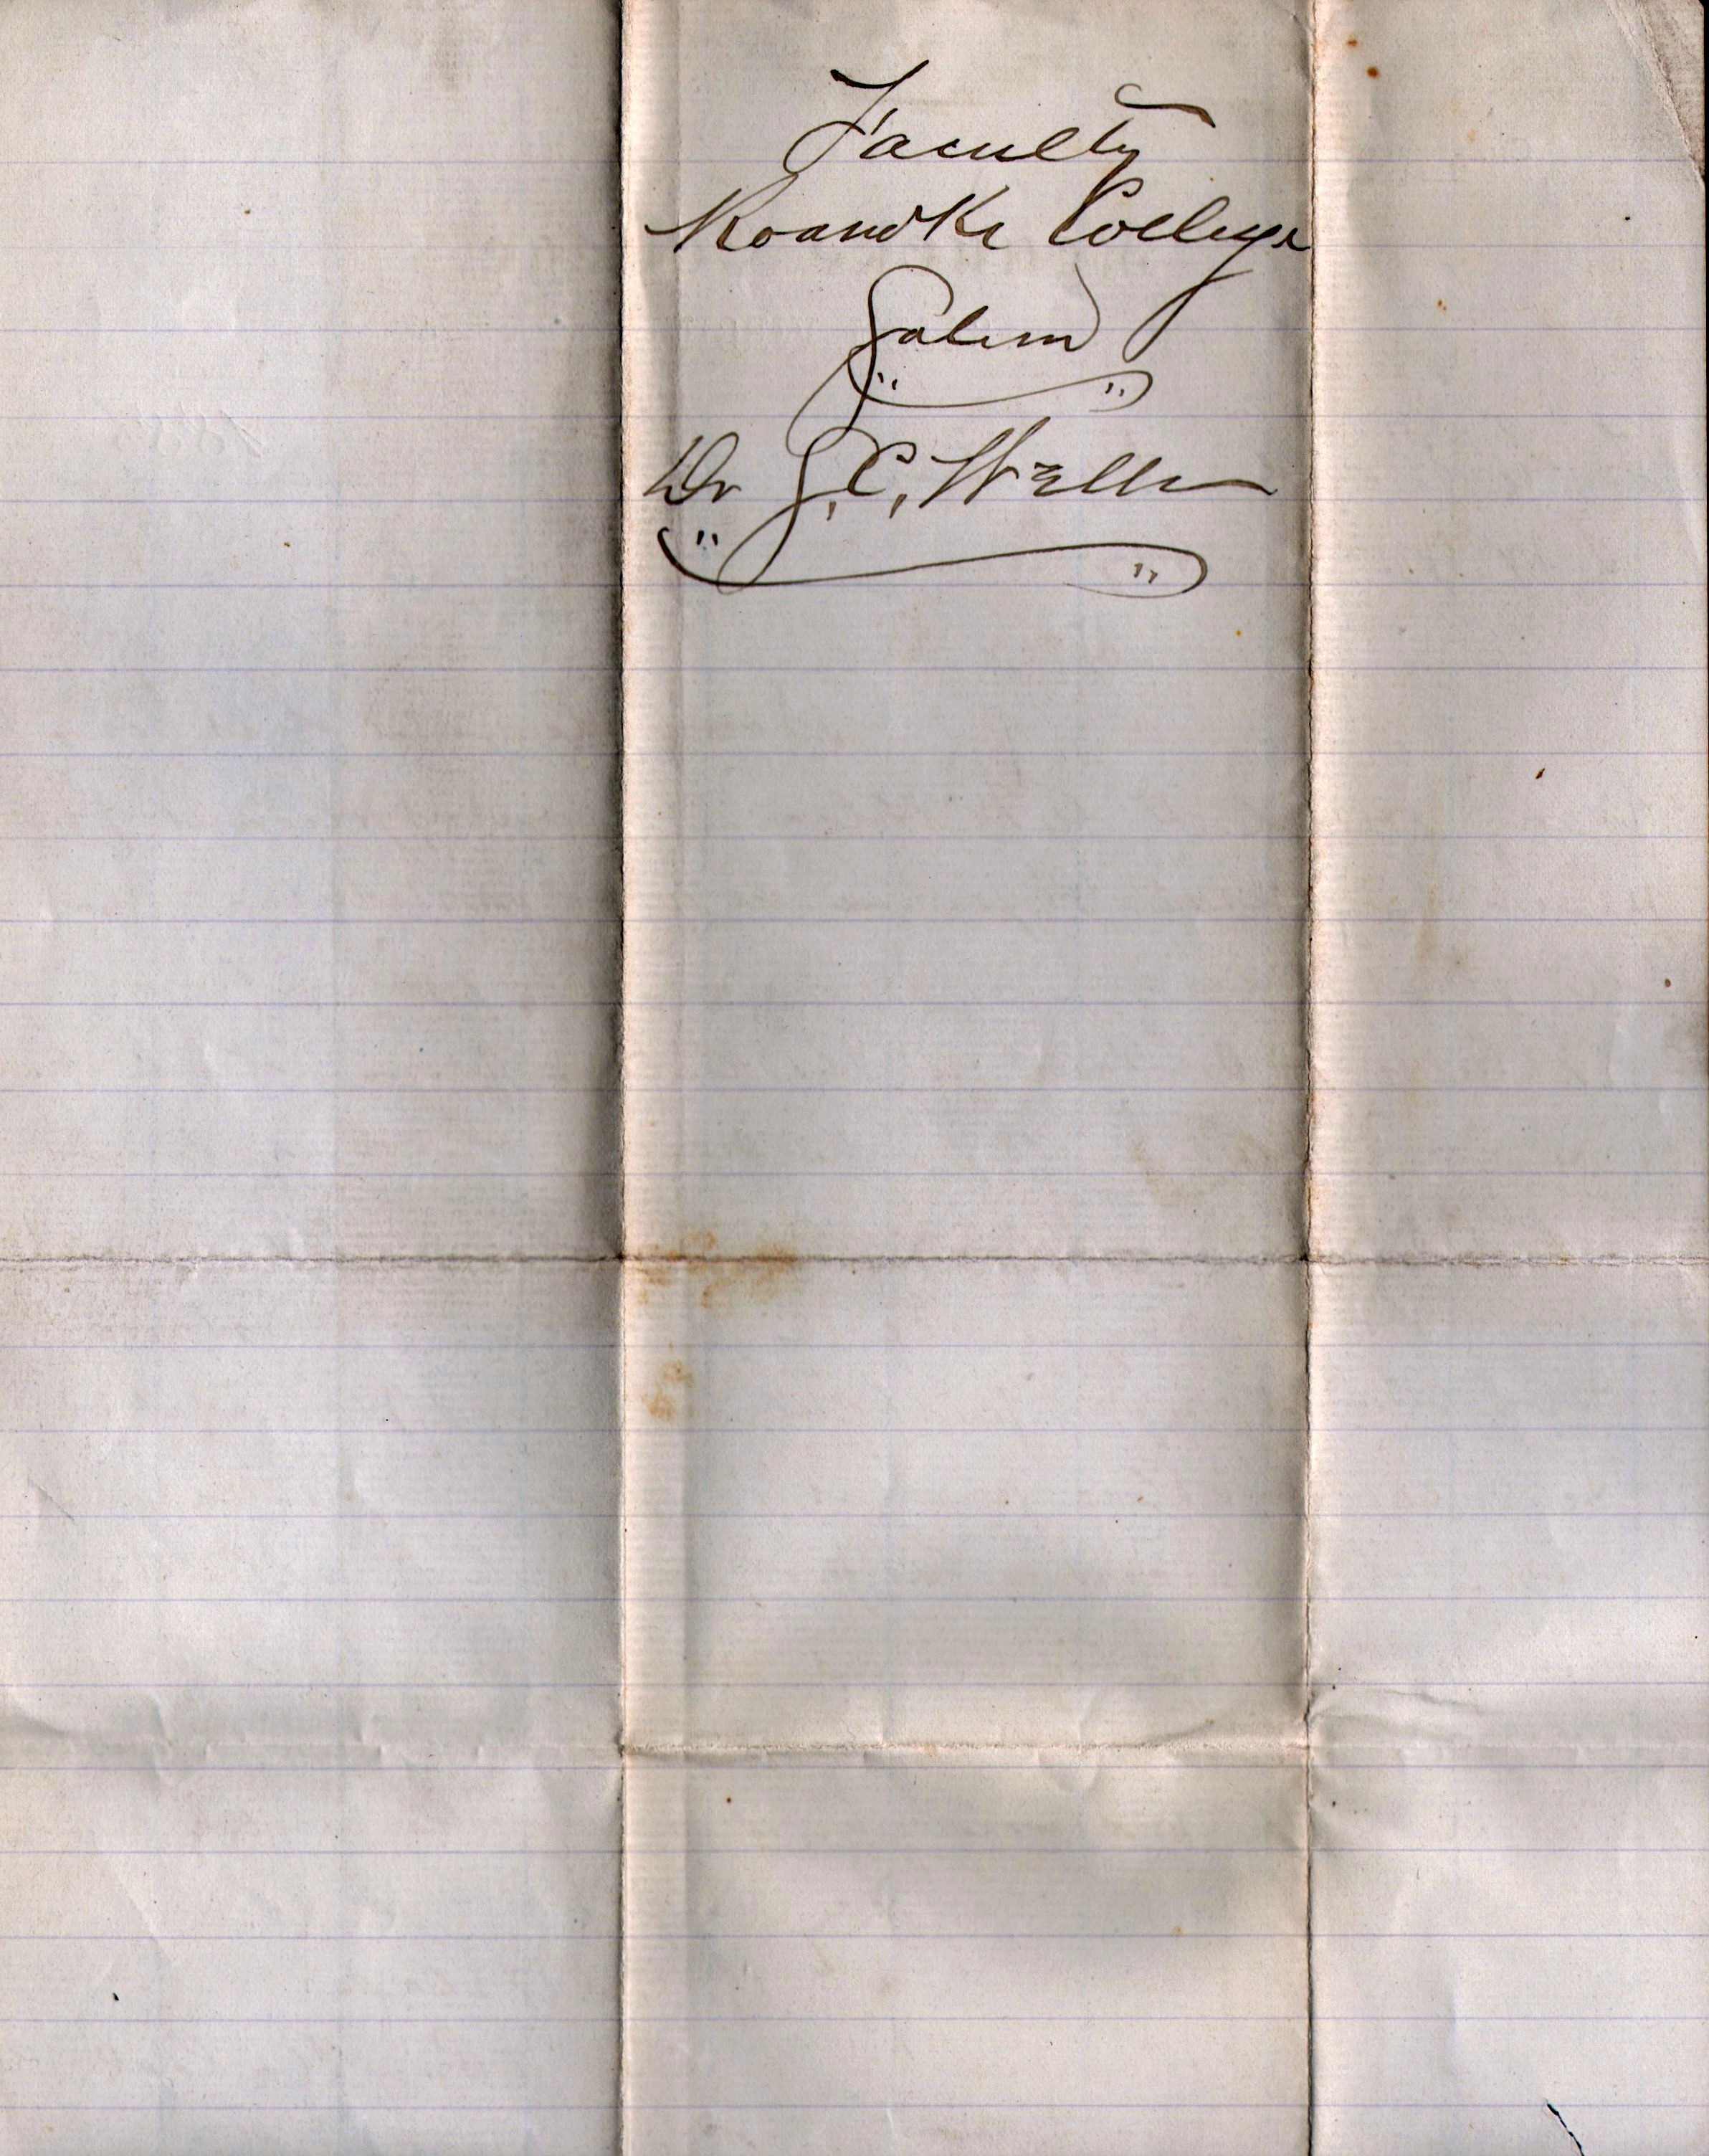 Faculty
Roanoke College
Salem
Dr S. C. Wells